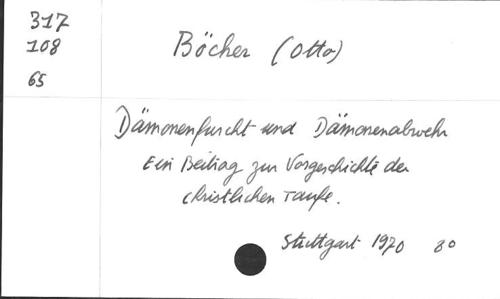 317
108
65
Böcher (Otto)
Dämonenfurcht und Dämonenabwehr
Ein Beitrag zur Vorgeschichte der
christlichen Taufe.
Stuttgart 1970 8°